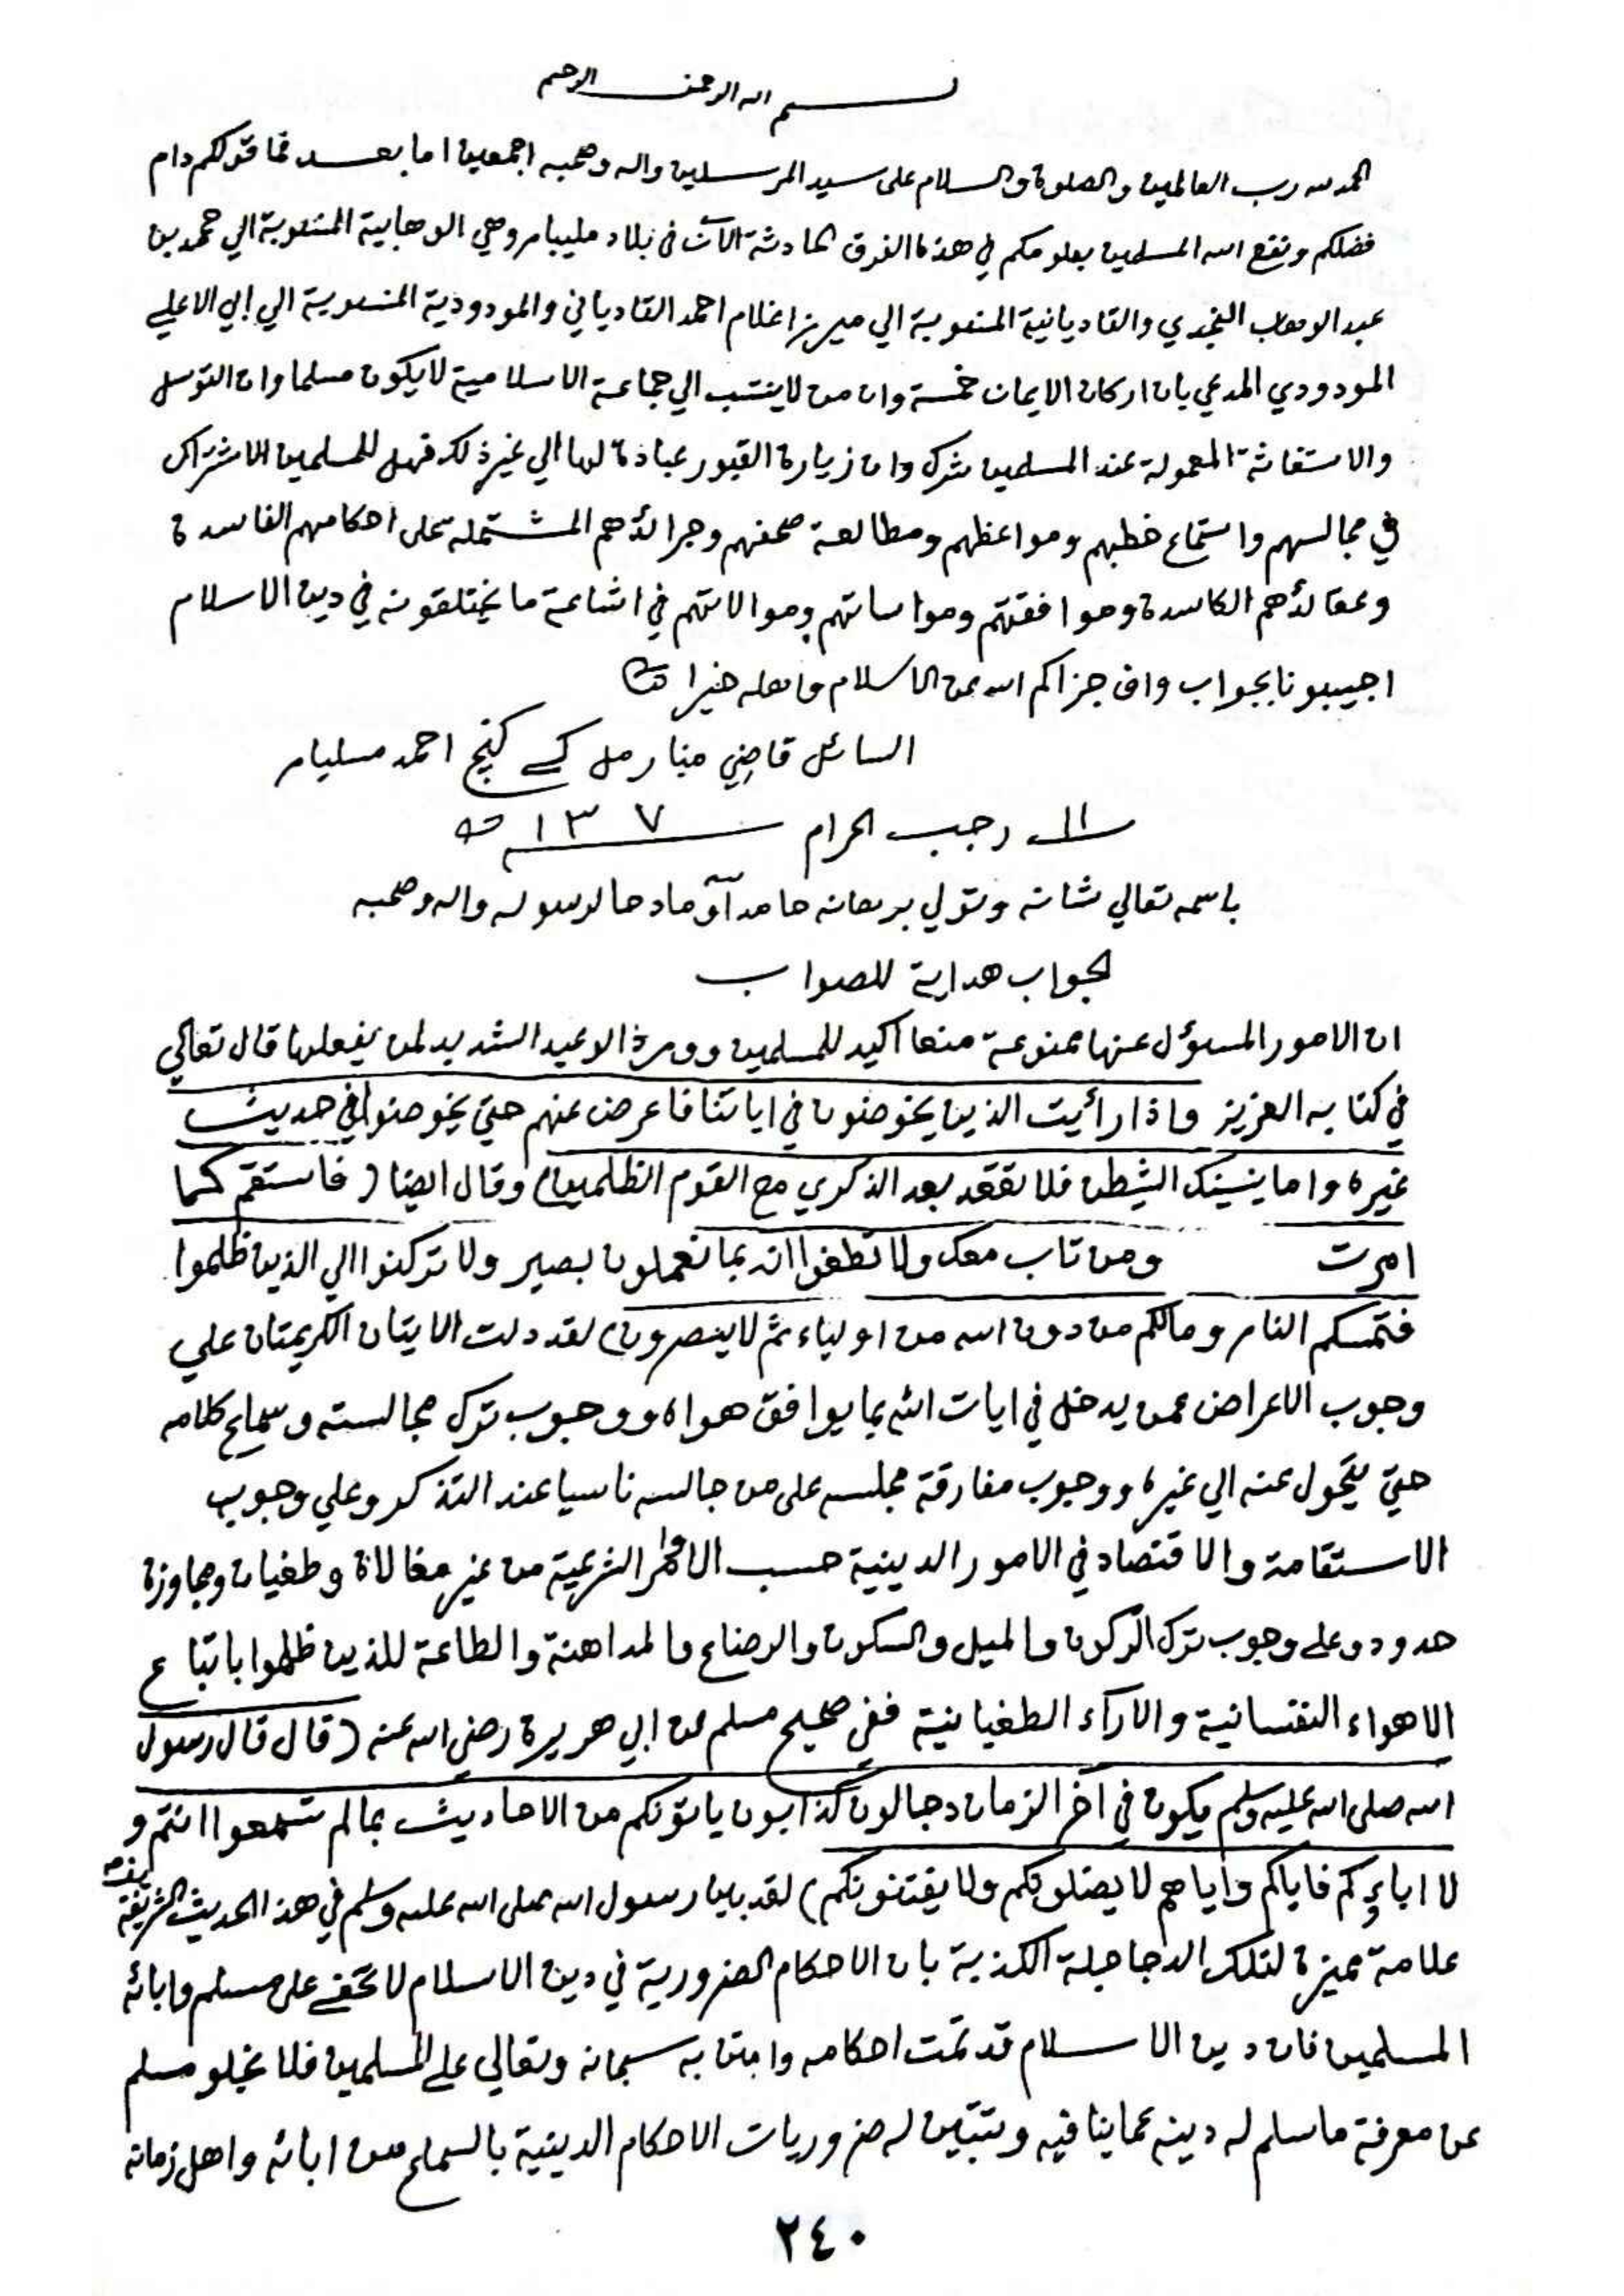 بسم الله الرحمن الرحيم
الحمد لله رب العالمين والصلوة والسلام على سيد المرسلين واله وصحبه اجمعين اما بعد فما قولكم دام
فضلكم ونفع الله المسلمين بعلومكم في هذه الفرق الحادثة الآن في بلاد مليبار وهي الوهابية المنسوبة الي محمد بن
عبد الوهاب النجدي والقاديانية المنسوبة الي ميرزا غلام احمد القادياني والمودودية المنسوبة الي ابي الاعلي
المودودي المدعي بان اركان الايمان خمسة وان من لا ينتسب الي جماعة الاسلامية لا يكون مسلما وان التوسل
والاستغاثة المعمولة عند المسلمين شرك وان زيارة القبور عبادة لها الي غير ذلك فهل للمسلمين الاشتراك
في مجالسهم واستماع خطبهم ومواعظهم ومطالعة صحفهم وجرائدهم المشتملة على احكامهم الفاسدة
وعقائدهم الكاسدة وموافقتهم ومواساتهم وموالاتهم في اشاعة ما يختلقونه في دين الاسلام
اجيبونا بجواب واف جزاكم الله عن الاسلام واهله خيرا
السائل قاضي منارمل كے كنج احمد مسليار
١١ رجب الحرام ١٣٧ هـ
باسمه تعالي شانه وتولي برهانه حامدا ومادحا لرسوله واله وصحبه
الجواب هداية للصواب
ان الامور المسؤل عنها ممنوعة منعا اكيد للمسلمين وورد الوعيد الشديد لمن يفعلها قال تعالي
في كتابه العزيز واذا رأيت الذين يخوضون في اياتنا فاعرض عنهم حتي يخوضوا في حديث
غيره واما ينسينك الشيطن فلا تقعد بعد الذكري مع القوم الظلمين) وقال ايضا (فاستقم كما
امرت ومن تاب معك ولا تطغوا انه بما تعملون بصير ولا تركنوا الي الذين ظلموا
فتمسكم النار ومالكم من دون الله من اولياء ثم لا ينصرون) لقد دلت الايتان الكريمتان علي
وجوب الاعراض عمن يدخل في ايات الله بما يوافق هواه ووجوب ترك مجالسته وسماع كلامه
حتي يتحول عنه الي غيره ووجوب مفارقة مجلسه على من جالسه ناسيا عند التذكر وعلي وجوب
الاستقامة والاقتصاد في الامور الدينية حسب الاوامر الشرعية من غير مغالاة وطغيان ومجاوزة
حدود وعلى وجوب ترك الركون والميل والسكون والرضاع والمداهنة والطاعة للذين ظلموا باتباع
الاهواء النفسانية والاراء الطغيانية ففي صحيح مسلم عن ابي هريرة رضي الله عنه (قال قال رسول
الله صلى الله عليه وسلم يكون في اخر الزمان دجالون كذابون ياتونكم من الاحاديث بما لم تسمعوا انتم و
لا اباؤكم فاياكم واياهم لا يضلونكم ولا يفتنونكم) لقد بين رسول الله صلى الله عليه وسلم في هذا الحديث الشريف
علامة مميزة لتلك الدجاجلة الكذبة بان الاحكام الضرورية في دين الاسلام لا تخفى على مسلم وابائه
المسلمين فان دين الاسلام قد تمت احكامه وامتن به سبحانه وتعالي على المسلمين فلا يخلو مسلم
عن معرفة ما سلم له دينه عما ينافيه وتتبين له ضروريات الاحكام الدينية بالسماع من ابائه واهل زمانه
٢٤٠